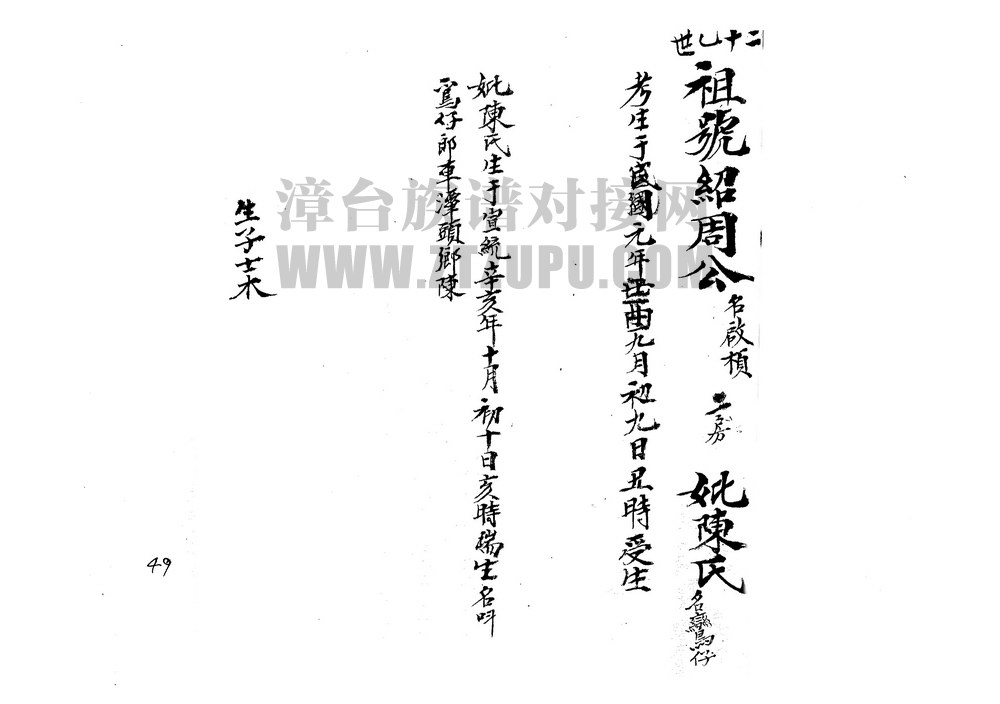 二十乙世
祖號紹周公
名啟楨
二房
妣陳氏
名鸞仔
考生于民國元年酉九月初九日丑時受生
妣陳氏生于宣統辛亥年十月初十日亥時瑞生名叫
鸞仔郎車潭頭鄉陳
生子士木
49
漳台族谱对接网
WWW.ZTZUPU.COM